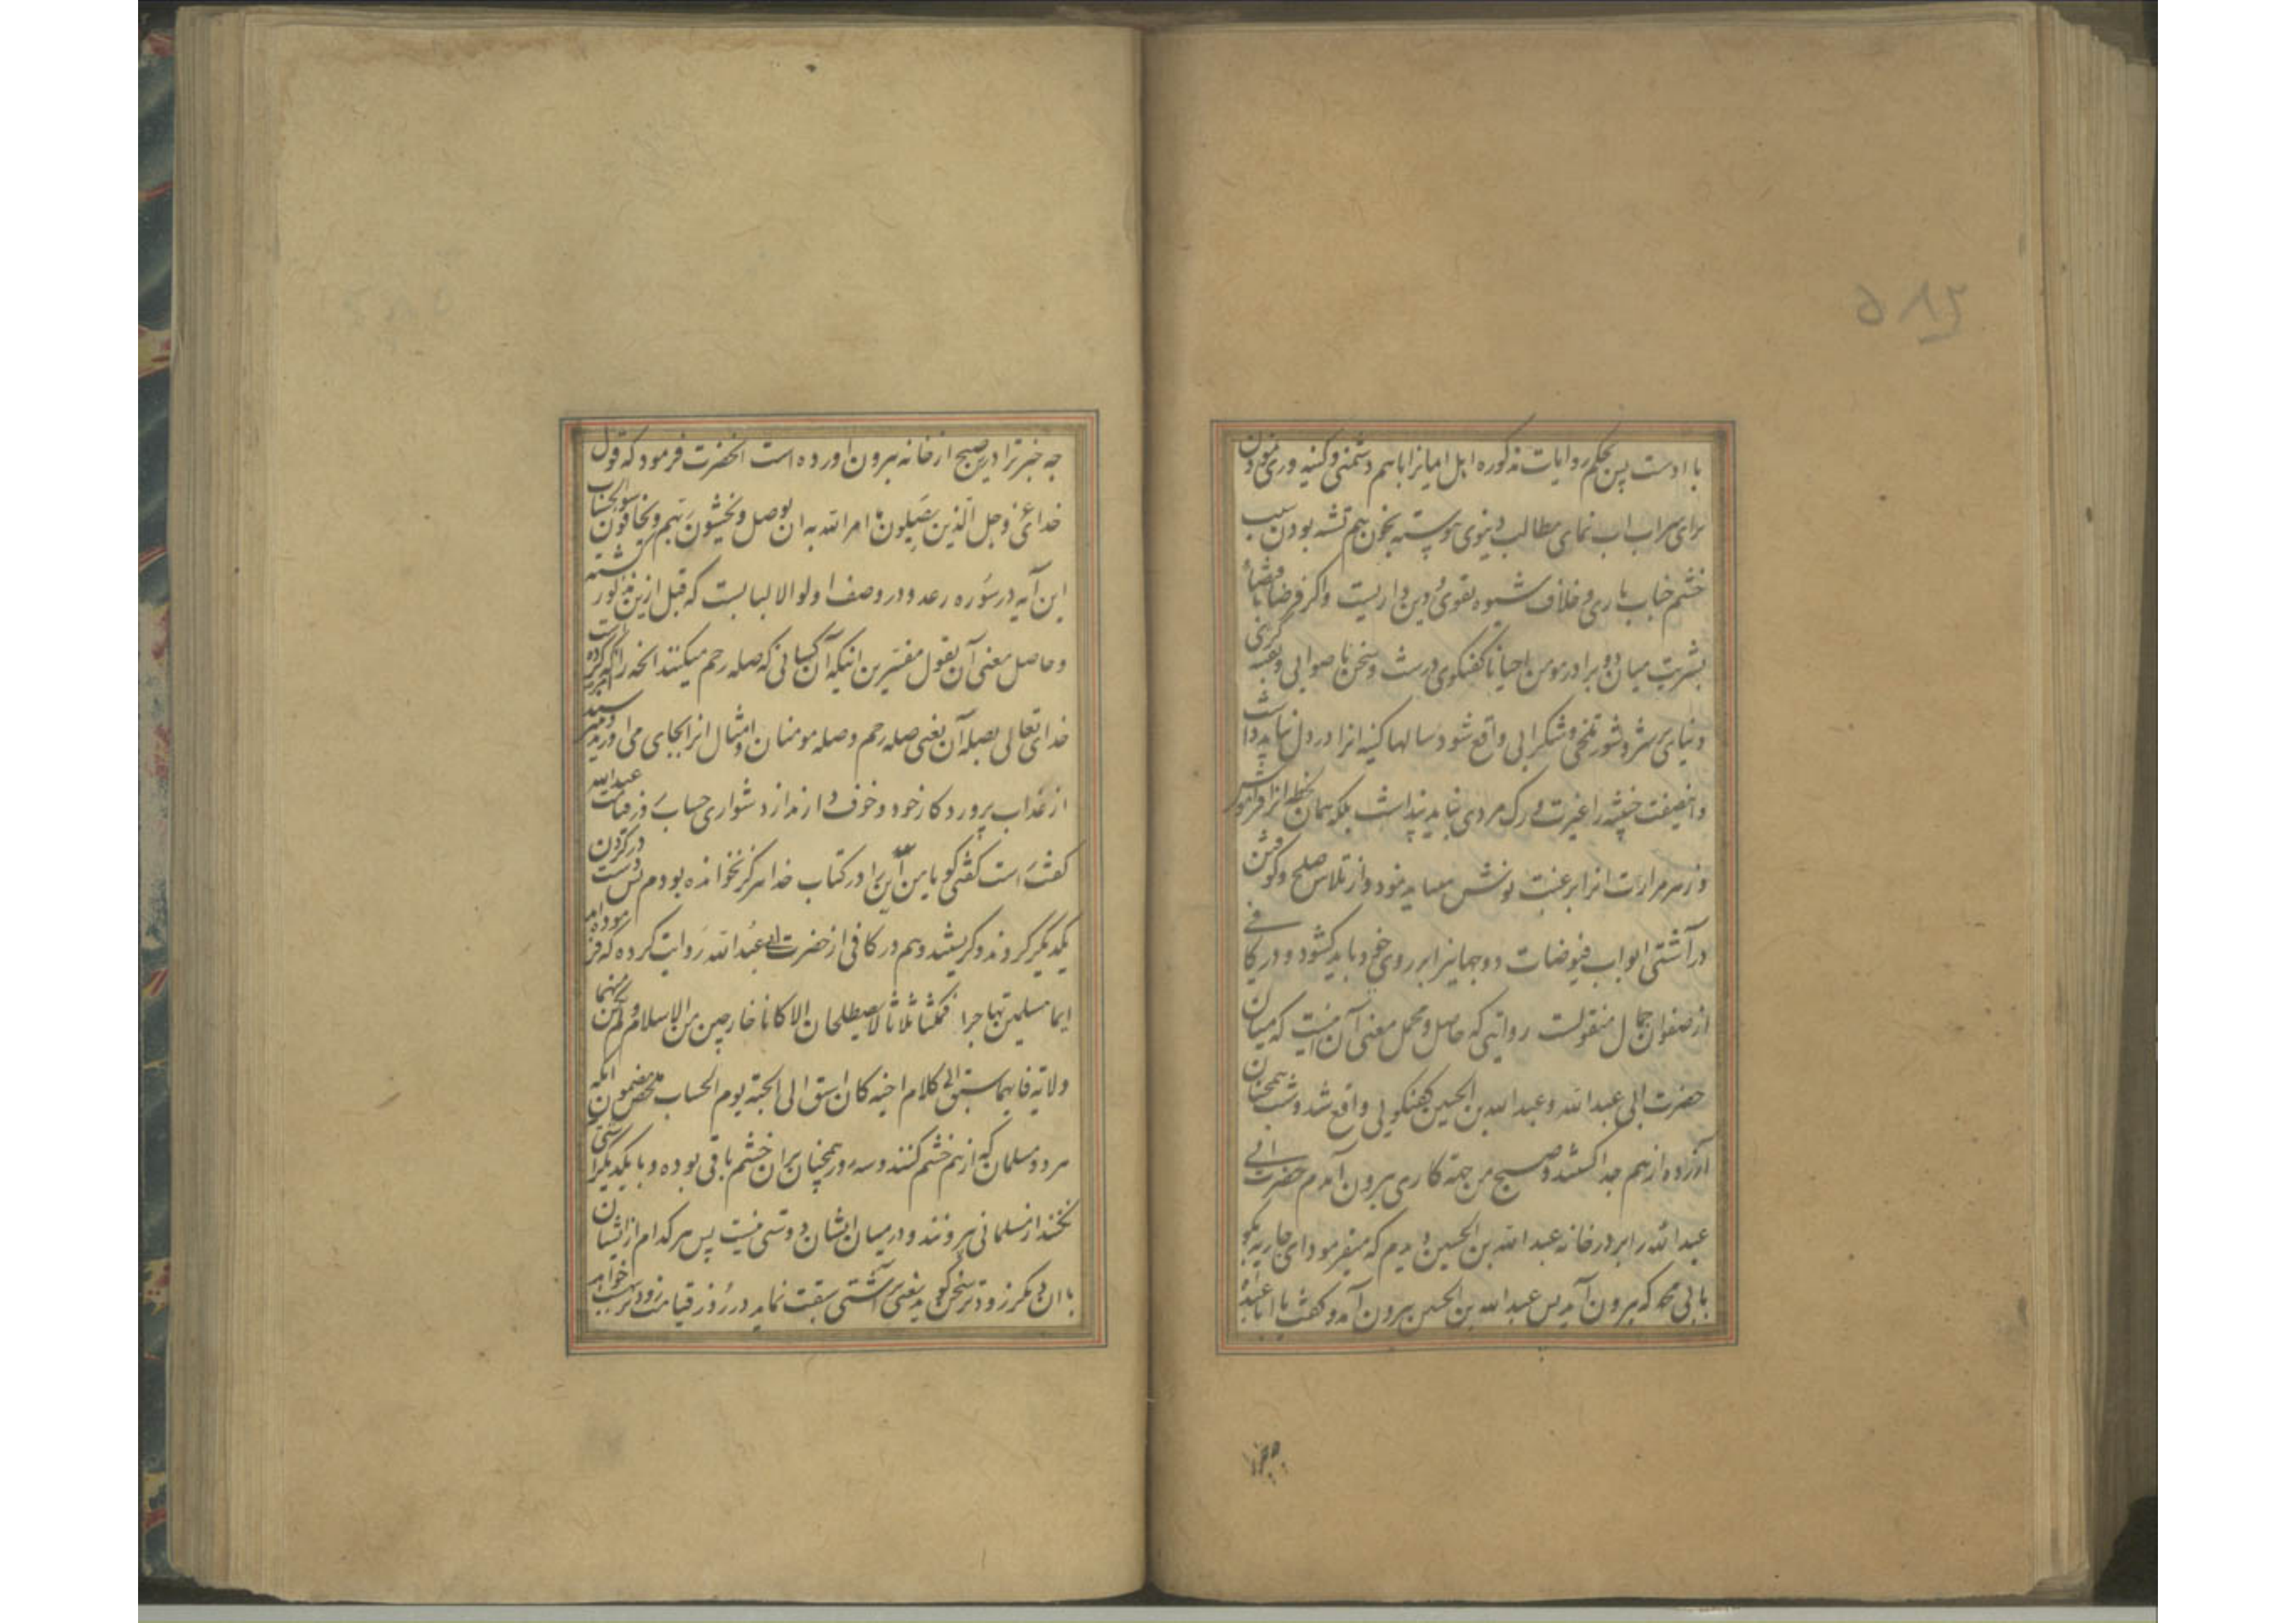 ۵۸۶
با اوست پس بحکم روایات مذکوره اهل ایمانرا باهم دشمنی و کینه وری نمودن
برای سراب آب نمای مطالب دنیوی پیوسته بخون هم تشنه بودن سبب
خشم جناب باری و خلاف شیوه تقوی و دین داریست و اگر فرضا بمقتضای
بشریت میان دو برادر مومن احیانا گفتگوی درشت و سخن ناصوابی و بقیه گردنی
دنیای پر شر و شور تلخی و شکرابی واقع شود سالها کینه انرا در دل نباید داشت
و نباید پنداشت بلکه همان لحظه انرا فراموش
و زهر مرارت انرا برغبت نوش میباید نمود و از تلاش صلح و کوشش
در آشتی ابواب فیوضات دوجهانیرا بر روی خود باید گشود و در کافی
از صفوان جمال منقولست روایتی که حاصل و محمل معنی آن اینست که میان
حضرت ابی عبدالله و عبدالله بن الحسین گفتگویی واقع شد و شب همچنان
آزرده از هم جدا گشتند و صبح من جهة کاری بیرون آمدم حضرت ابی
عبدالله را بر در خانه عبدالله بن الحسین دیدم که میفرمود ای جاریه بگو
بابی محمد که بیرون آید پس عبدالله بن الحسین بیرون آمد و گفت یا ابا عبدالله
چه خبر ترا درین صبح از خانه بیرون اورده است انحضرت فرمود که قول
خدای عز و جل الذین یصلون ما امر الله به ان یوصل و یخشون ربهم و یخافون سوء الحساب
این آیه در سوره رعد و در وصف اولوا الالبابست که قبل ازین مذکور گشته
و حاصل معنی آن بقول مفسرین انیکه آن کسانی که صله رحم میکنند انچه را که امر کرده است
خدای تعالی بصله آن یعنی صله رحم و صله مومنان و امثال انرا بجای می اورند و میترسند
از عذاب پروردکار خود و خوف دارند از دشواری حساب در قیامت عبدالله
گفت راست گفتی گویا من این آیه را در کتاب خدا هرگز نخوانده بودم پس دست در گردن
یکدیگر کردند و گریستند و هم در کافی از حضرت ابی عبدالله روایت کرده که فرموده اند
ایما مسلمین تهاجرا فمکثا ثلاثا لا یصطلحان الا کانا خارجین من الاسلام و لم یکن بینهما
ولایة فایهما سبق الی کلام اخیه کان اسبق الی الجنة یوم الحساب ملخص مضمون انکه
هر دو مسلمان که از هم خشم کنند و سه روز همچنان بران خشم باقی بوده و با یکدیگر آشتی
نکنند از مسلمانی بیروننند و در میان ایشان دوستی نیست پس هر کدام از ایشان
با آن دیگر زودتر سخن گوید یعنی بر آشتی سبقت نماید در روز قیامت زودتر ببهشت خواهد